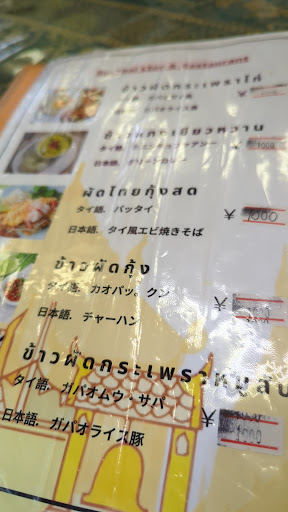 & Restaurant
ข้าวผัดกระเพราไก่
ข้าวแกงเขียวหวาน
日本語. グリーンカレー
¥ 1000
ผัดไทยกุ้งสด
タイ語. パッタイ
日本語. タイ風エビ焼きそば
¥ 1000
ข้าวผัดกุ้ง
タイ語. カオパッ.クン
日本語. チャーハン
¥
ข้าวผัดกระเพราหมูสับ
タイ語. ガパオムウ・サパ
日本語. ガパオライス豚
¥ 1000